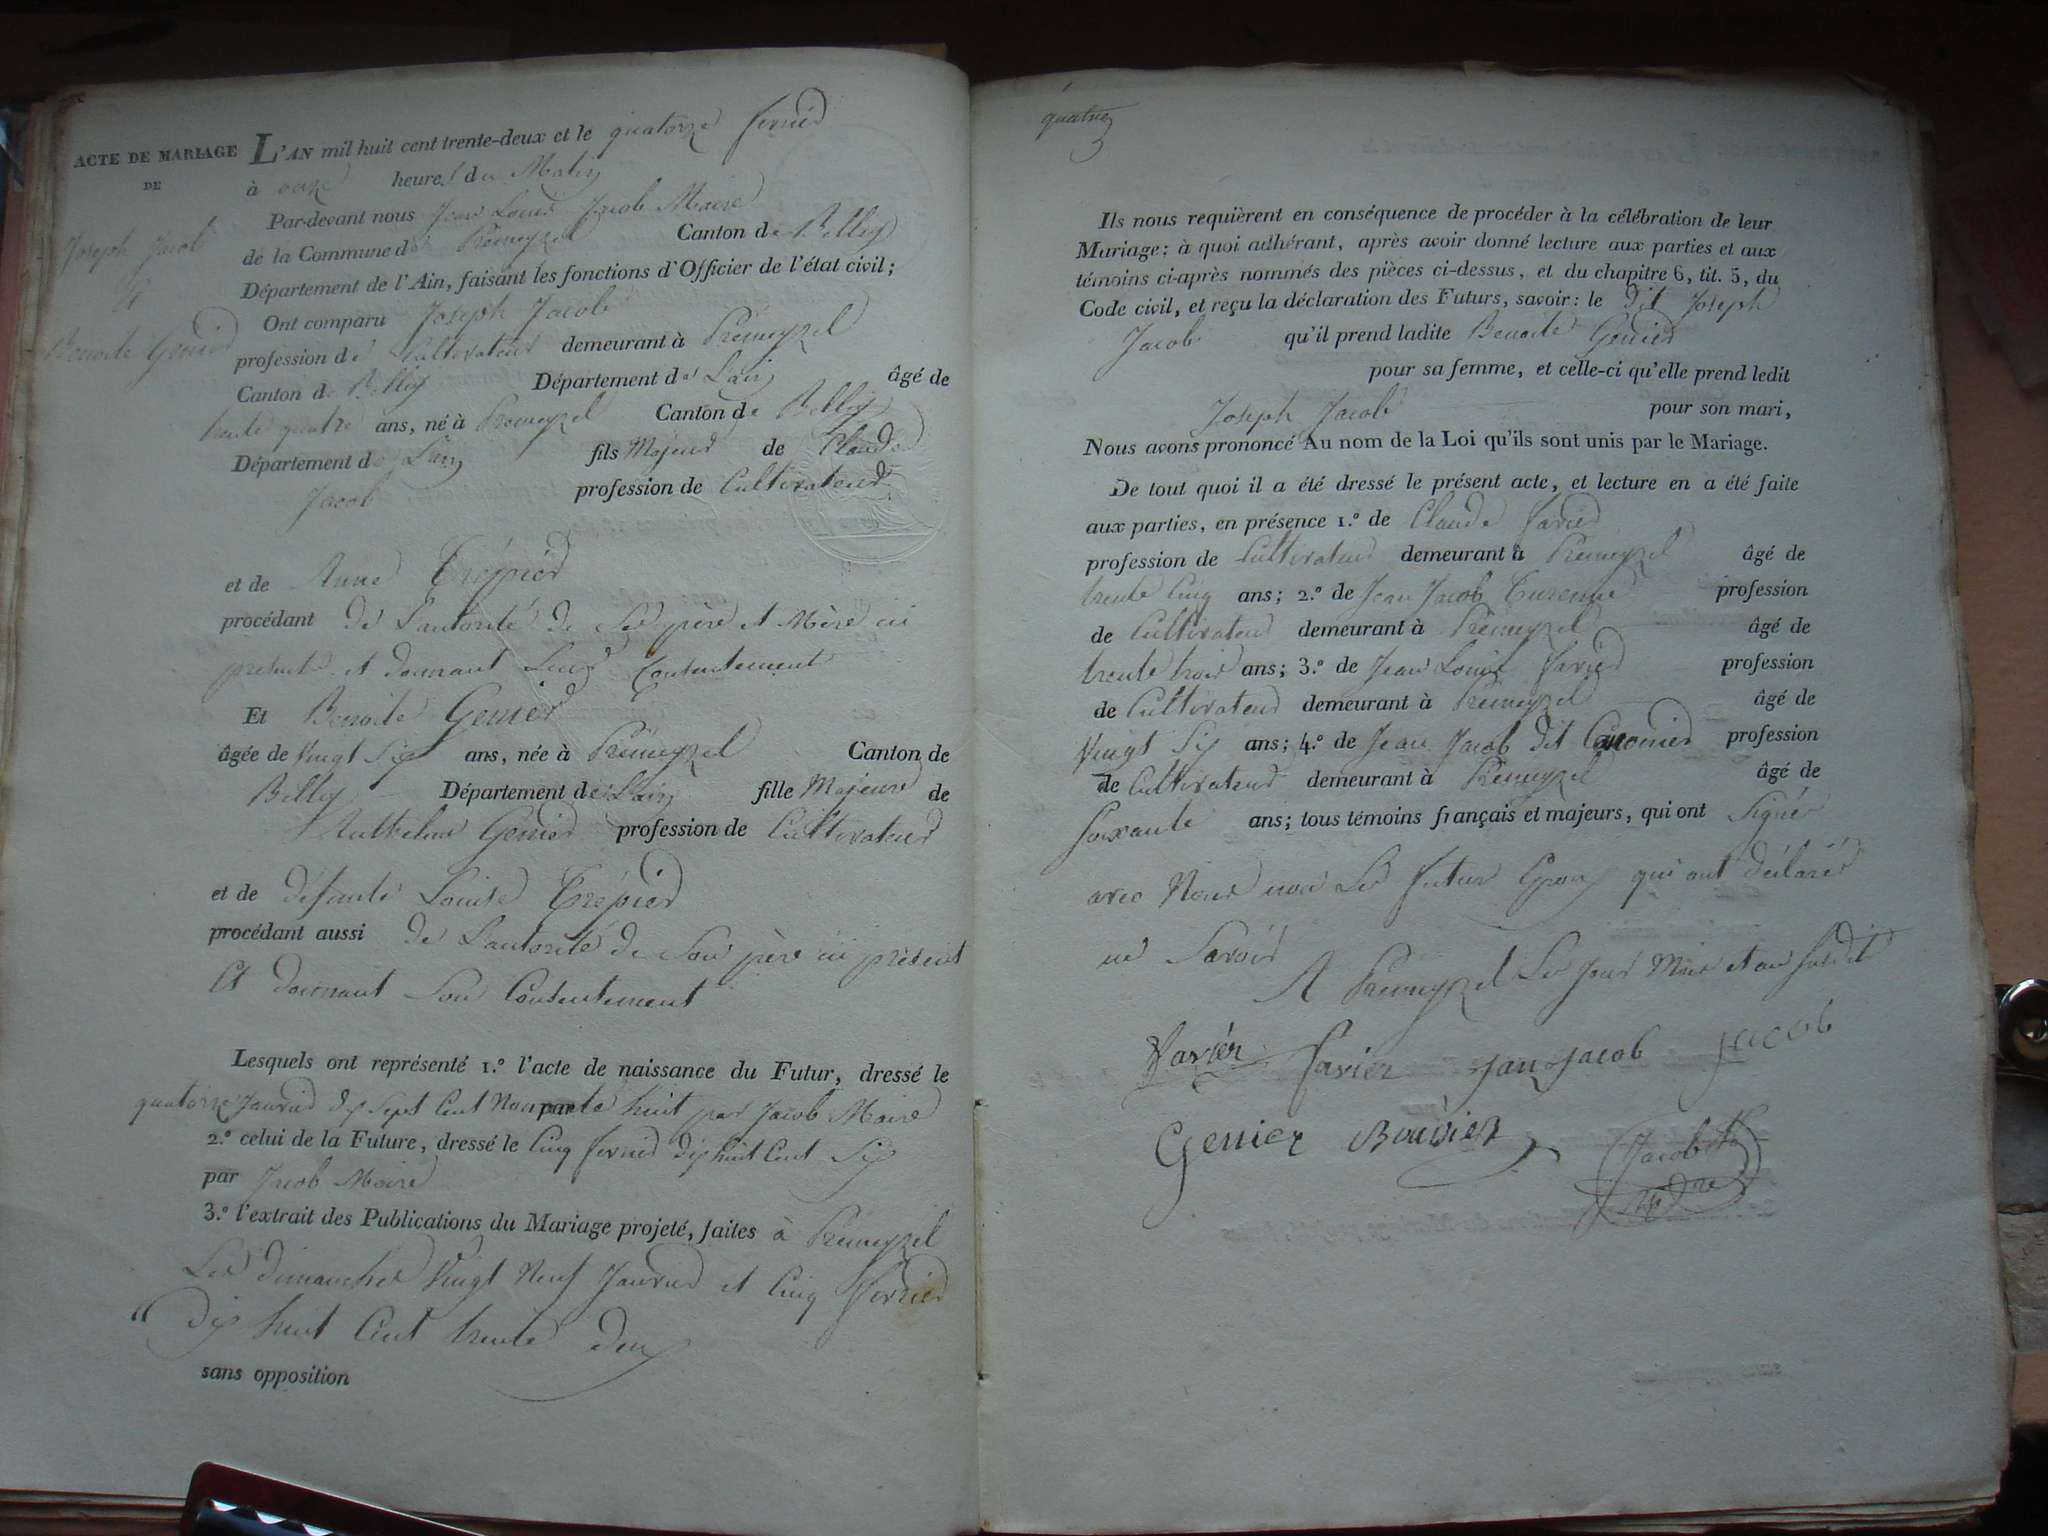 ACTE DE MARIAGE
DE
Joseph Jacob
et
Benoite Genier
L'AN mil huit cent trente-deux et le quatorze fevrier
à onze heures du Matin
Par-devant nous Jean Louis Jacob Maire
de la Commune de Premeyzel Canton de Belley
Département de l'Ain, faisant les fonctions d'Officier de l'état civil;
Ont comparu Joseph Jacob
profession de Cultivateur demeurant à Prémeyzel
Canton de Belley Département de L'ain âgé de
trente quatre ans, né à Premeyzel Canton de Belley
Département de L'ain fils Majeur de Claude
Jacob profession de Cultivateur
et de Anne Trépier
procédant de L'autorité de Ses père et Mère ici
présents et donnant Leur Contentement
Et Benoite Genier
âgée de Vingt Six ans, née à Prémeyzel Canton de
Belley Département de L'ain fille Majeure de
Anthelme Genier profession de Cultivateur
et de défunte Louise Trépier
procédant aussi de L'autorité de Son père ici présent
Et donnant Son Contentement
Lesquels ont représenté 1.º l'acte de naissance du Futur, dressé le
quatorze Janvier dix Sept Cent Nonante huit par Jacob Maire
par
2.º celui de la Future, dressé le Cinq fevrier dix huit Cent Six
par Jacob Maire
3.º l'extrait des Publications du Mariage projeté, faites à Prémeyzel
Les dimanches Vingt Neuf Janvier et Cinq fevrier
" Dix huit Cent trente deux
sans opposition
quatre
Ils nous requièrent en conséquence de procéder à la célébration de leur
Mariage; à quoi adhérant, après avoir donné lecture aux parties et aux
témoins ci-après nommés des pièces ci-dessus, et du chapitre 6, tit. 5, du
Code civil, et reçu la déclaration des Futurs, savoir: le dit Joseph
Jacob qu'il prend ladite Benoite Genier
pour sa femme, et celle-ci qu'elle prend ledit
Joseph Jacob pour son mari,
Nous avons prononcé Au nom de la Loi qu'ils sont unis par le Mariage.
De tout quoi il a été dressé le présent acte, et lecture en a été faite
aux parties, en présence 1.º de Claude favier
profession de Cultivateur demeurant à Prémeyzel âgé de
trente Cinq ans; 2.º de Jean Jacob Turenne profession
de Cultivateur demeurant à Prémeyzel âgé de
trente trois ans; 3.º de Jean Louis favier profession
de Cultivateur demeurant à Prémeyzel âgé de
Vingt Six ans; 4.º de Jean Jacob dit profession
de Cultivateur demeurant à Prémeyzel âgé de
Soixante ans; tous témoins français et majeurs, qui ont Signés
avec Nous non Les futur Epoux qui ont déclarés
ne Savoir
A Premeyzel Les Jour Mois et an Susdit
favier favier jan jacob jacob
Genier Bouvier Jacob